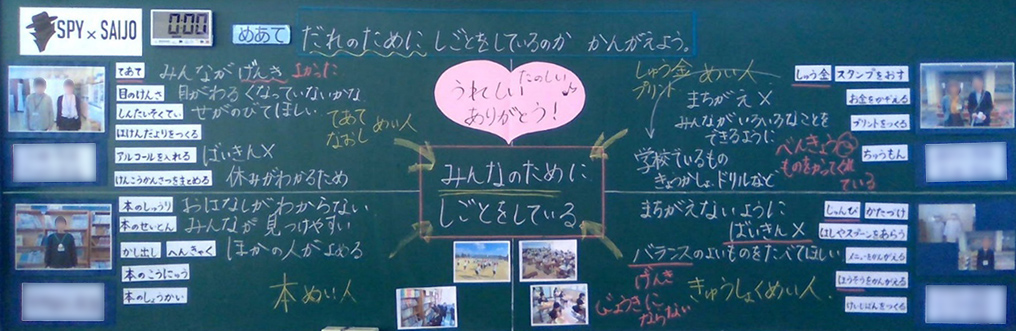 SPY × SAIJO
0:00
めあて
だれのために しごとをしているのか かんがえよう。
てあて
みんながげんき よかった
目のけんさ
目がわるくなっていないかな
しんたいそくてい
せがのびてほしい
ほけんだよりをつくる
アルコールを入れる
ばいきん×
けんこうかんさつをまとめる
休みがわかるため
てあて
なおし めい人
うれしい
たのしい♪
ありがとう!
みんなのために
しごとをしている
しゅう金 めい人
プリント
まちがえ×
みんながいろいろなことを
できるように
学校でいるもの
きょうかしょ、ドリルなど
べんきょう
ものをかってくれ
ている
しゅう金
スタンプをおす
お金をかぞえる
プリントをつくる
ちゅうもん
本のしゅうり
おはなしがわからない
本のせいとん
みんなが見つけやすい
かし出し へんきゃく
ほかの人がよめる
本のこうにゅう
本のしょうかい
本めい人
まちがえないように
ばいきん×
バランスのよいものをたべてほしい
げんき
びょうきに
ならない
きゅうしょくめい人
じゅんび かたづけ
はしやスプーンをあらう
メニューをかんがえる
えいようそをかんがえる
けいじばんをつくる